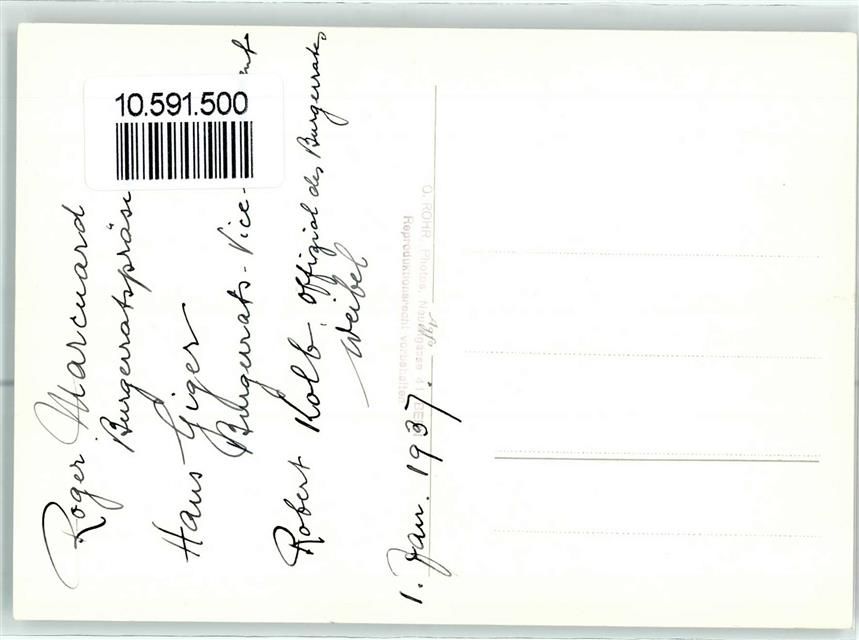 10.591.500
Roger Marcuard
Burgerratspräsi
Hans Giger
Burgerrats-Vice-
Robert Kolb, Offizial des Burgerrates
Weibel
1. Jan. 1937.
O. ROHR, Photos,
Reproduktionsrecht vorbehalten
Agfa